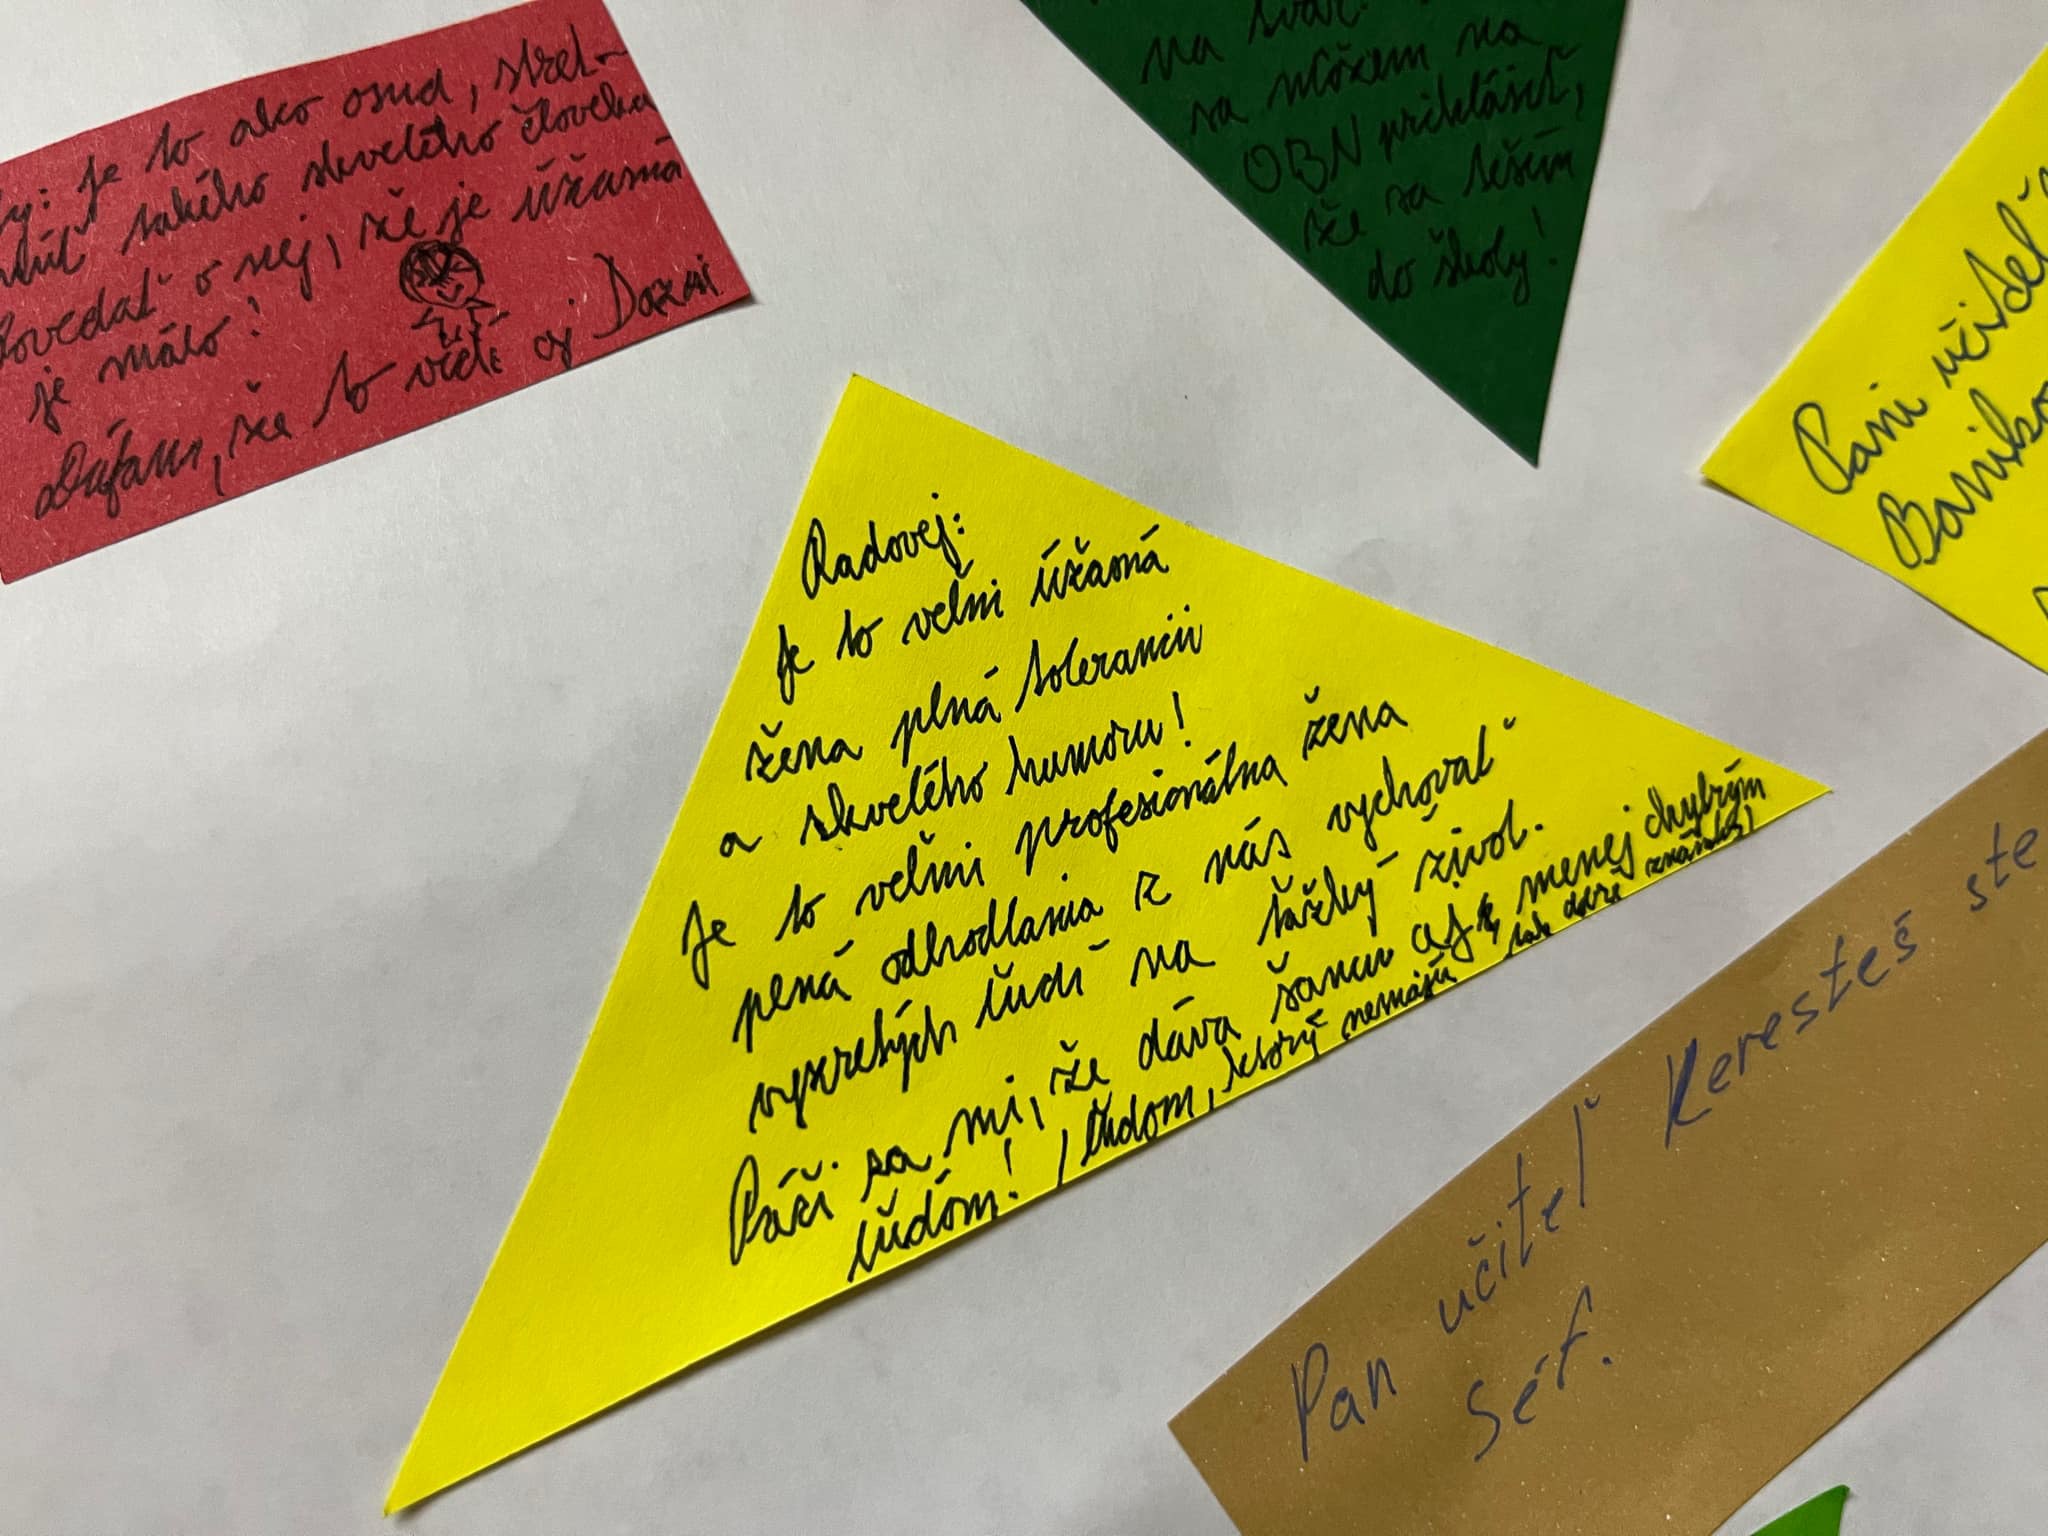 je to ako osud, stret-
núť takého skvelého človeka
povedať o nej, že je úžasná
je málo!
dúfam, že to vidí aj Dazai
na
sa môžem na
OBN prihlásiť,
že sa teším
do školy!
Pani učiteľ
Radovej:
Je to veľmi úžasná
žena plná tolerancii
a skvelého humoru!
Je to veľmi profesionálna žena
plná odhodlania z nás vychovať
vyzretých ľudí na ťažký život.
Páči sa mi, že dáva šancu aj menej chybrým
ľuďóm! / ľuďom, ktorý nemajú tak dobré známky/
Pan učiteľ Keresteš ste
šéf.